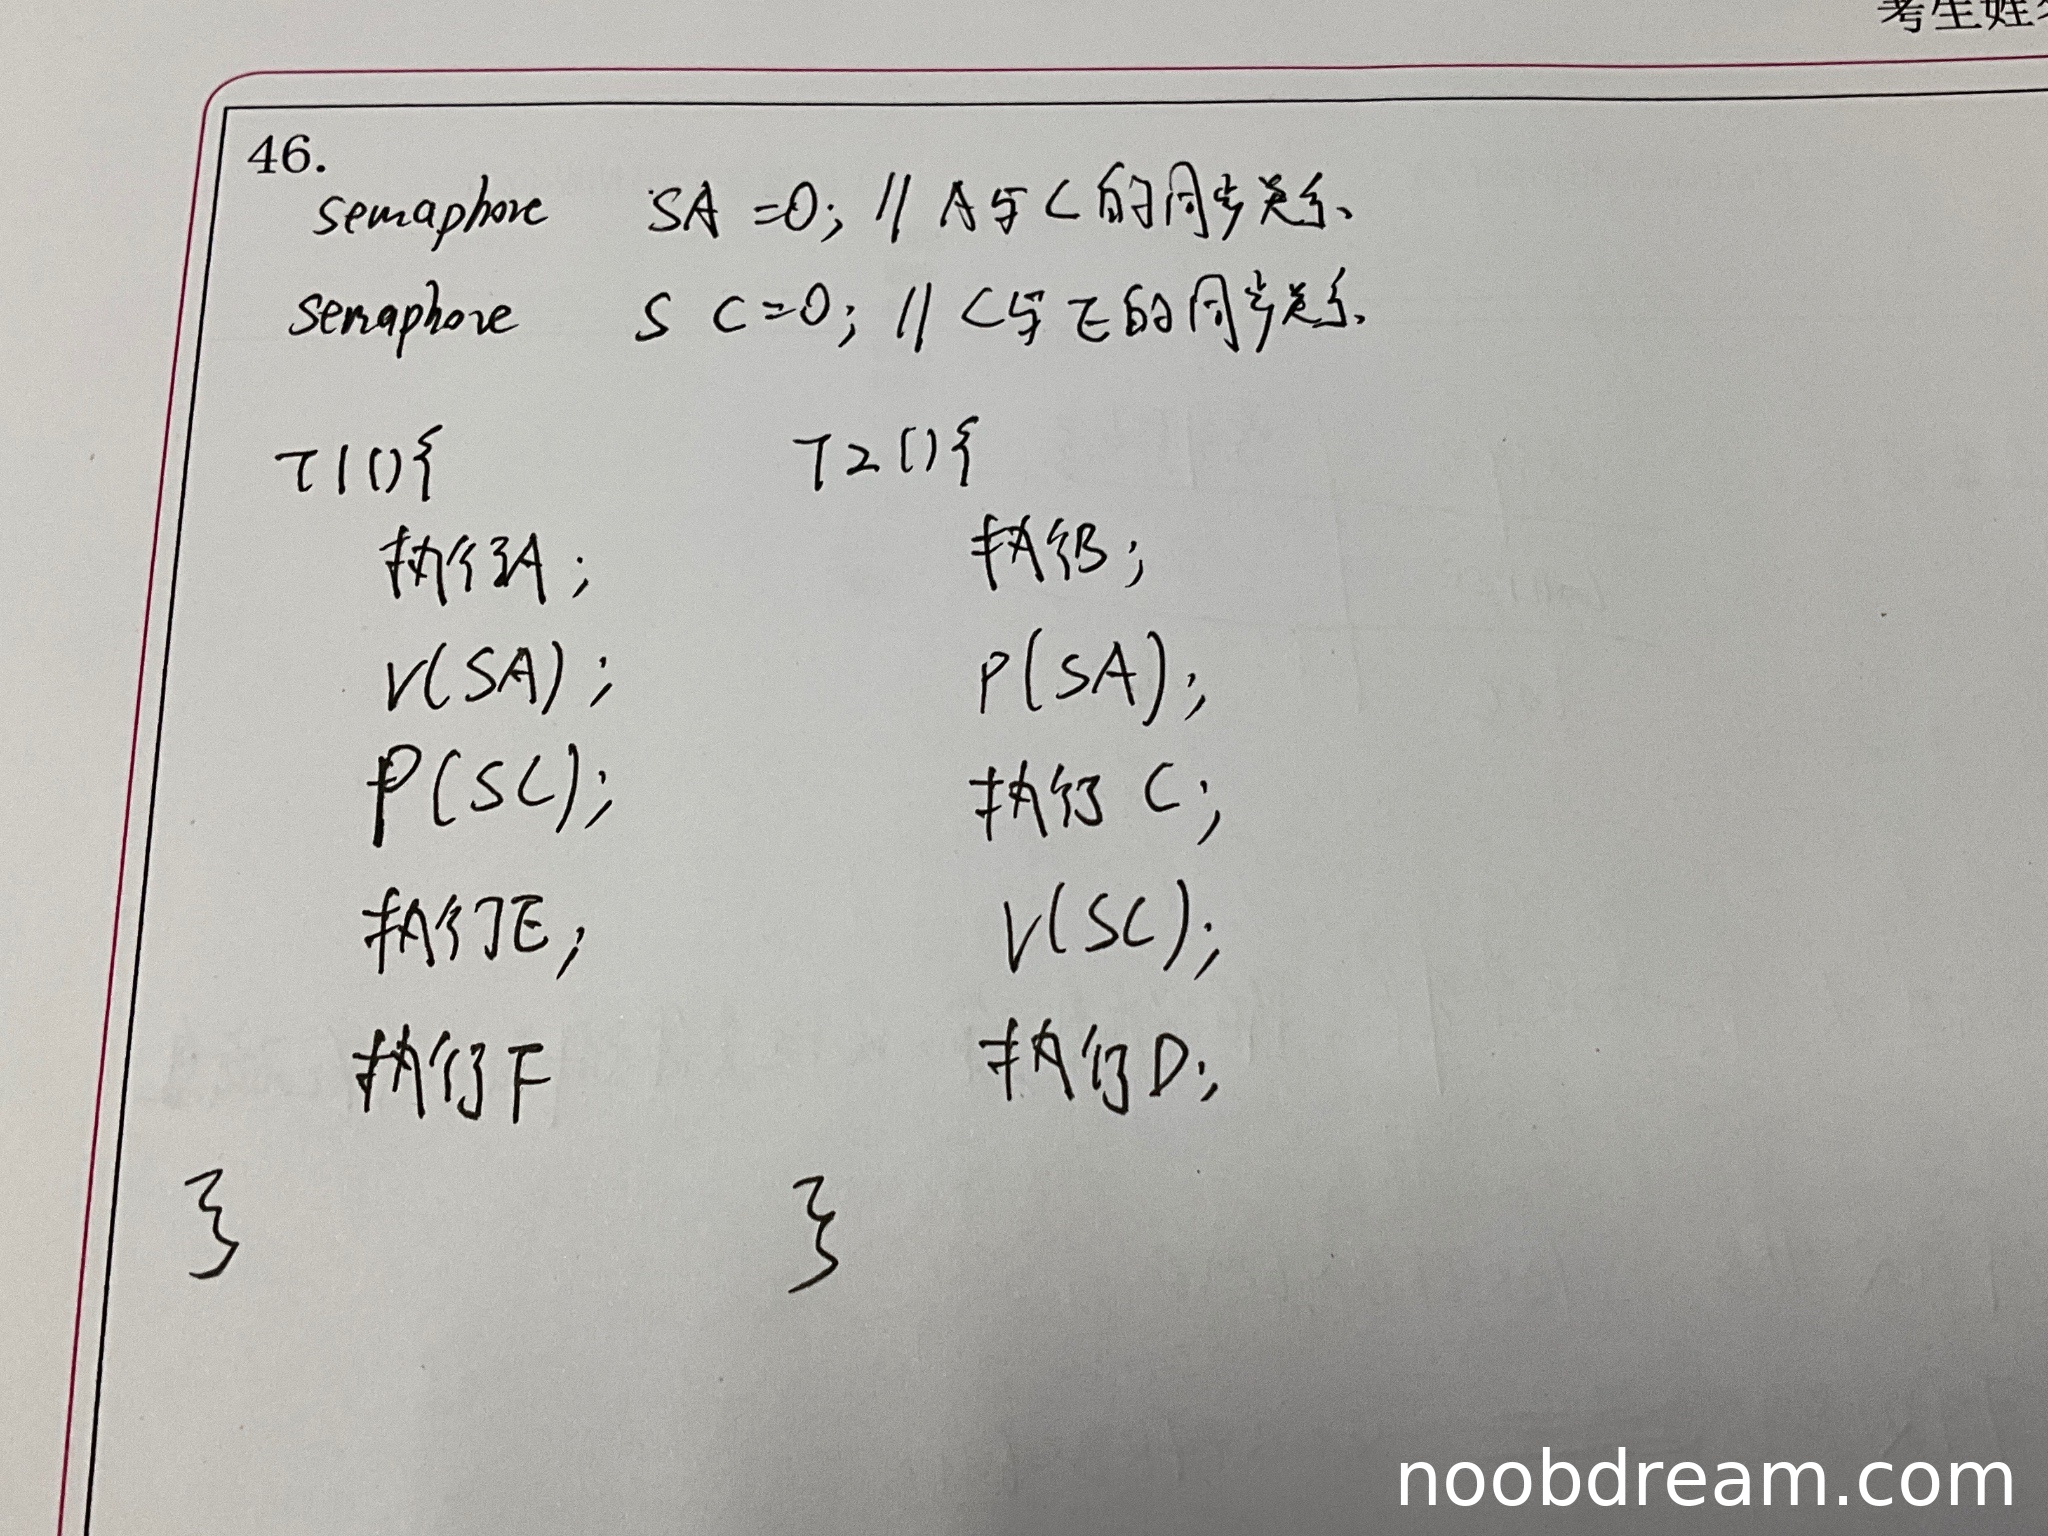 考生姓名
46.
semaphore SA =0; // A与C的同步关系.
semaphore SC=0; // C与E的同步关系.
T1(){ T2(){
执行A; 执行B;
V(SA); P(SA);
P(SC); 执行 C;
执行E; V(SC);
执行F 执行D;
} }
noobdream.com